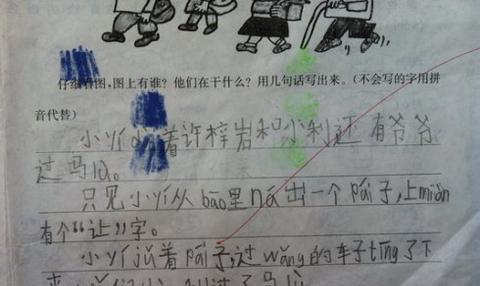 仔细看图，图上有谁？他们在干什么？用几句话写出来。（不会写的字用拼
音代替）
小丫 着许梓岩和小利还有爷爷
过马路。
只见小丫从bāo里ná出一个pái子，上miàn
有个“让”字。
小丫jǔ着pái子，过wǎng的车子tíng了下
来，